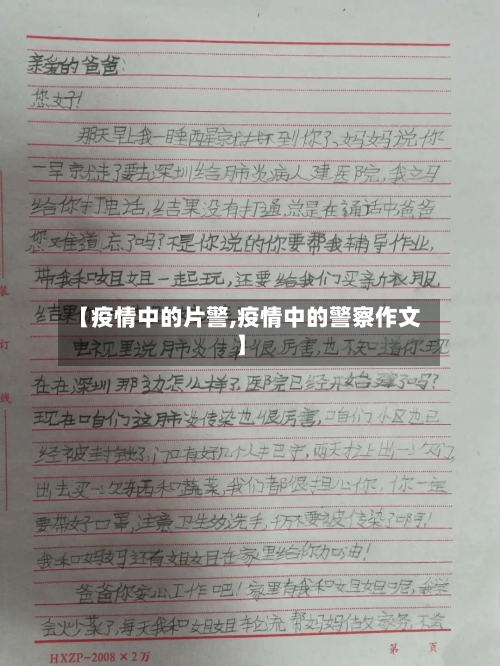 亲爱的爸爸:
您好!
那天早上我一睡醒就找不到你了、妈妈说你
一早就走了要去深圳给肺炎病人建医院,我立马
给你打电话,结果没有打通,总是在通话中爸爸
您难道忘了吗?不是你说的你要帮我辅导作业,
带我和姐姐一起玩,还要给我们买新衣服,
结果
【疫情中的片警,疫情中的警察作文
】
电视里说肺炎传染很厉害,也不知道你现
在在深圳那边怎么样了,医院已经开始建了吗?
现在咱们这肺炎传染也很厉害,咱们小区也已
经被封锁了,门口有好几个人把守,两天才让出一次门
出去买一次东西和蔬菜,我们都很担心你,你一定
要带好口罩,注意卫生勤洗手,千万不要被传染了呀!
我和妈妈还有姐姐在家里给你加油!
爸爸你安心工作吧!家里有我和姐姐呢,我学
会炒菜了,每天我和姐姐轮流帮妈妈做家务,不会
装
订
线
HXZP-2008×2万
第 页